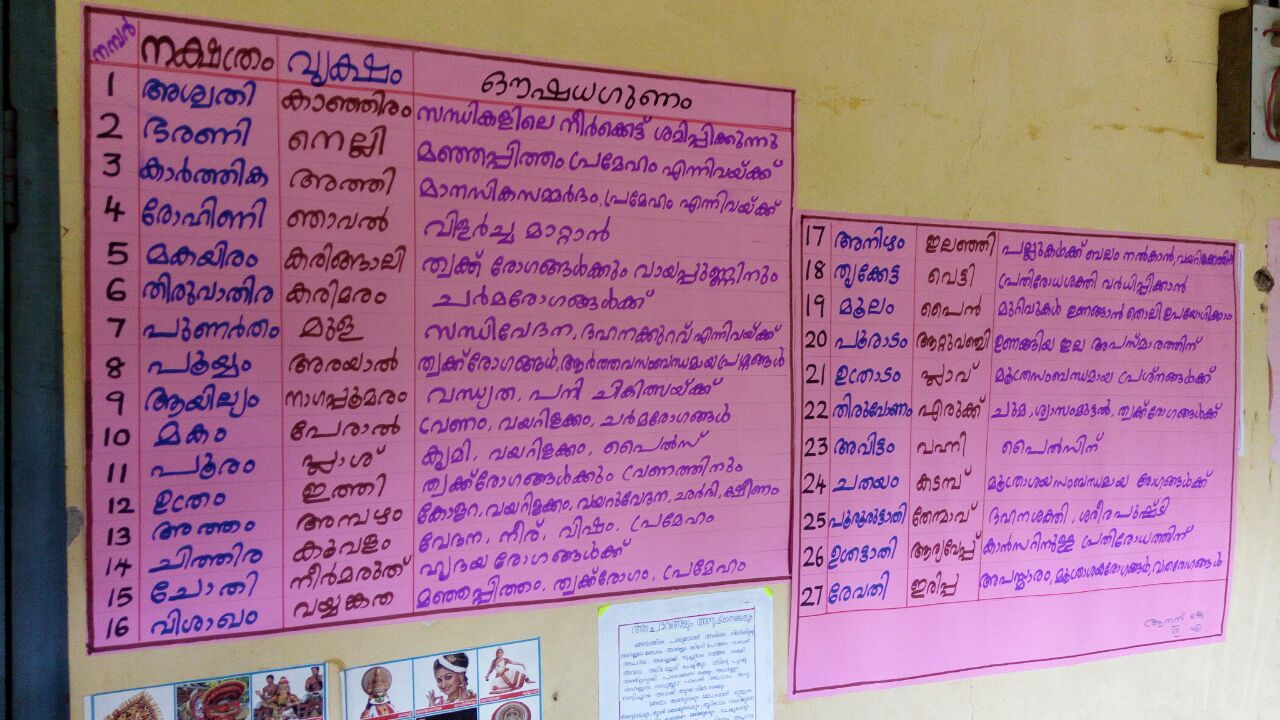 നമ്പർ നക്ഷത്രം വൃക്ഷം ഔഷധഗുണം
1 അശ്വതി കാഞ്ഞിരം സന്ധികളിലെ നീർക്കെട്ട് ശമിപ്പിക്കുന്നു
2 ഭരണി നെല്ലി മഞ്ഞപ്പിത്തം, പ്രമേഹം എന്നിവയ്ക്ക്
3 കാർത്തിക അത്തി മാനസികസമ്മർദം, പ്രമേഹം എന്നിവയ്ക്ക്
4 രോഹിണി ഞാവൽ വിളർച്ച മാറ്റാൻ
5 മകയിരം കരിങ്ങാലി ത്വക്ക് രോഗങ്ങൾക്കും വായപ്പുണ്ണിനും
6 തിരുവാതിര കരിമരം ചർമരോഗങ്ങൾക്ക്
7 പുണർതം മുള സന്ധിവേദന, ദഹനക്കുറവ് എന്നിവയ്ക്ക്
8 പൂയ്യം അരയാൽ ത്വക്ക് രോഗങ്ങൾ, ആർത്തവസംബന്ധമായ പ്രശ്നങ്ങൾ
9 ആയില്യം നാഗപ്പൂമരം വന്ധ്യത, പനി ചികിത്സയ്ക്ക്
10 മകം പേരാൽ വ്രണം, വയറിളക്കം, ചർമരോഗങ്ങൾ
11 പൂരം പ്ലാശ് കൃമി, വയറിളക്കം, പൈൽസ്
12 ഉത്രം ഇത്തി ത്വക്ക് രോഗങ്ങൾക്കും വ്രണത്തിനും
13 അത്തം അമ്പഴം കോളറ, വയറിളക്കം, വയറുവേദന, ഛർദി, ക്ഷീണം
14 ചിത്തിര കൂവളം വേദന, നീര്, വിഷം, പ്രമേഹം
15 ചോതി നീർമരുത് ഹൃദയ രോഗങ്ങൾക്ക്
16 വിശാഖം വയ്യങ്കത മഞ്ഞപ്പിത്തം, ത്വക്ക്രോഗം, പ്രമേഹം
17 അനിഴം ഇലഞ്ഞി പല്ലുകൾക്ക് ബലം നൽകാൻ,
18 തൃക്കേട്ട വെട്ടി പ്രതിരോധശക്തി വർധിപ്പിക്കാൻ
19 മൂലം പൈൻ മുറിവുകൾ ഉണങ്ങാൻ തൊലി ഉപയോഗിക്കാം
20 പൂരാടം ആറ്റുവഞ്ചി ഉണങ്ങിയ ഇല അപസ്മാരത്തിന്
21 ഉത്രാടം പ്ലാവ് മൂത്രസംബന്ധമായ പ്രശ്നങ്ങൾക്ക്
22 തിരുവോണം എരുക്ക് ചുമ, ശ്വാസംമുട്ടൽ, ത്വക്ക് രോഗങ്ങൾക്ക്
23 അവിട്ടം വഹ്നി പൈൽസിന്
24 ചതയം കടമ്പ് മൂത്രാശയസംബന്ധമായ രോഗങ്ങൾക്ക്
25 പൂരുരുട്ടാതി തേന്മാവ് ദഹനശക്തി, ശരീരപുഷ്ടി
26 ഉത്രട്ടാതി ആര്യവേപ്പ് കാൻസറിനുള്ള പ്രതിരോധത്തിന്
27 രേവതി ഇരിപ്പ അപസ്മാരം, മൂത്രാശയരോഗങ്ങൾ,
ആചാരങ്ങളും അനുഷ്ഠാനങ്ങളും